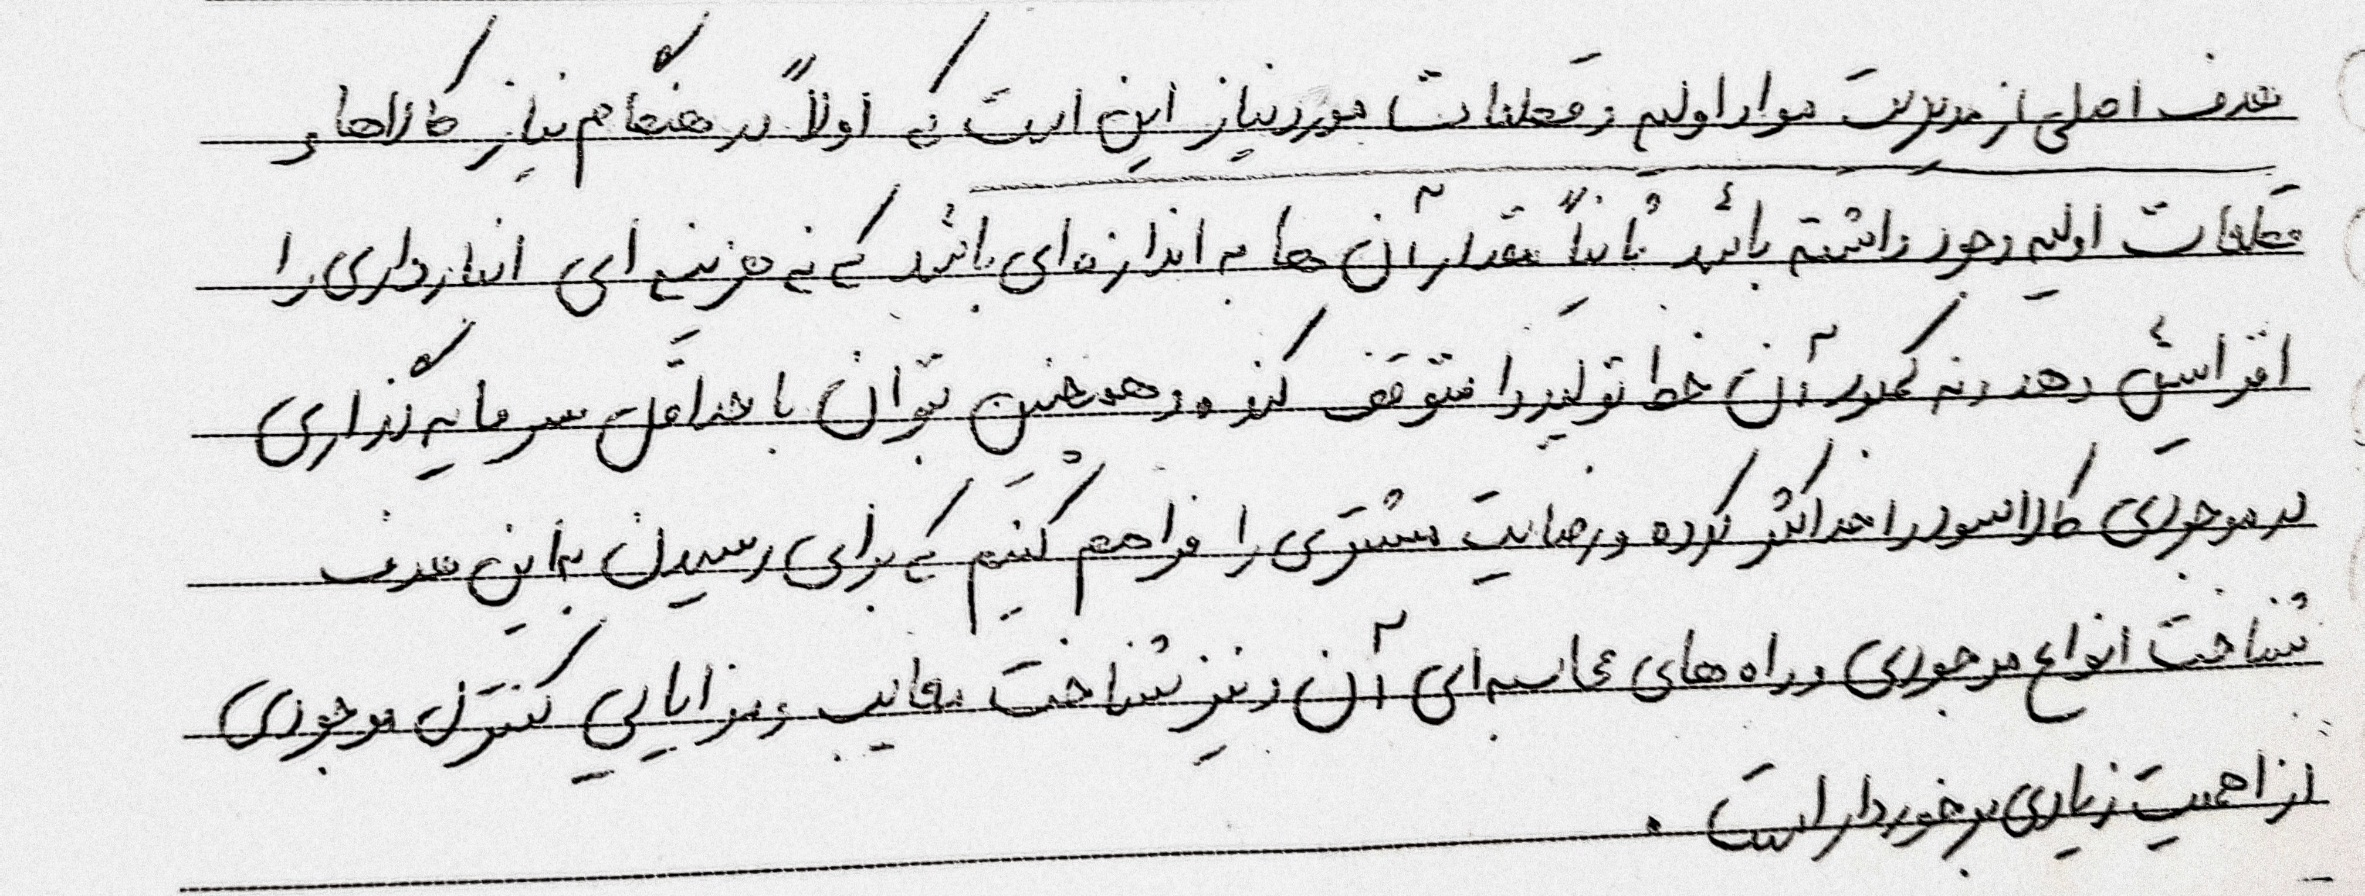 هدف اصلی از مدیریت مواد اولیه و قطعات مورد نیاز این است که اولاً در هنگام نیاز کالاها و
قطعات اولیه وجود داشته باشد ثانیاً مقدار آن ها به اندازه ای باشد که نه هزینه ای انبارداری را
افزایش دهد و نه کمبود آن خط تولید را متوقف کند و همچنین بتوان با حداقل سرمایه گذاری
در موجودی کالا سود را حداکثر کرده و رضایت مشتری را فراهم کنیم که برای رسیدن به این هدف
شناخت انواع موجودی و راه های محاسبه ای آن و نیز شناخت معایب و مزایایی کنترل موجودی
از اهمیت زیادی برخوردار است .